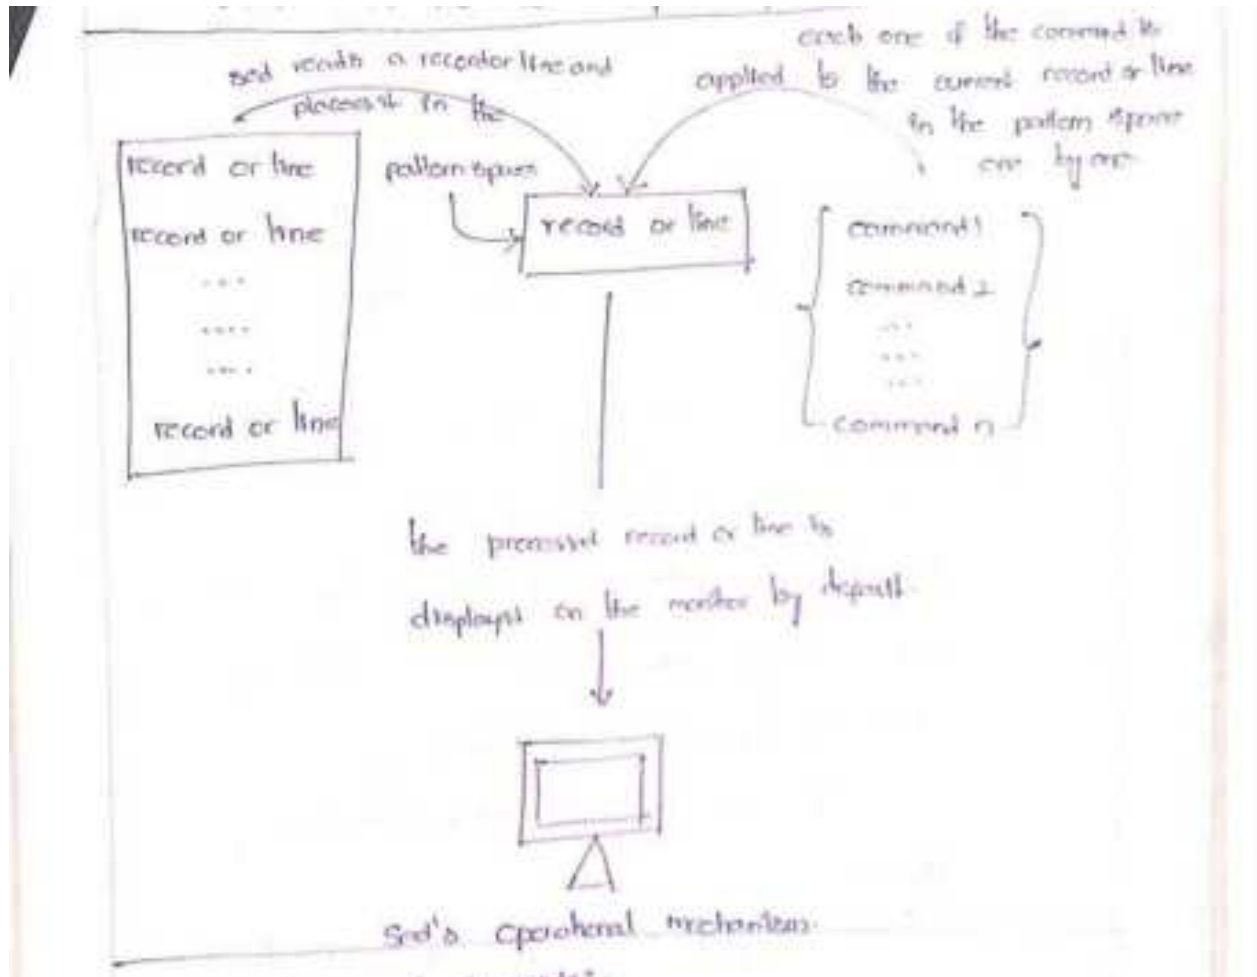 sed reads a record or line and
places it in the
pattern space
each one of the command is
applied to the current record or line
in the pattern space
one by one
record or line
record or line
....
....
....
record or line
record or line
command 1
command 2
...
...
...
command n
the processed record or line is
displayed on the monitor by default.
Sed's operational mechanism.